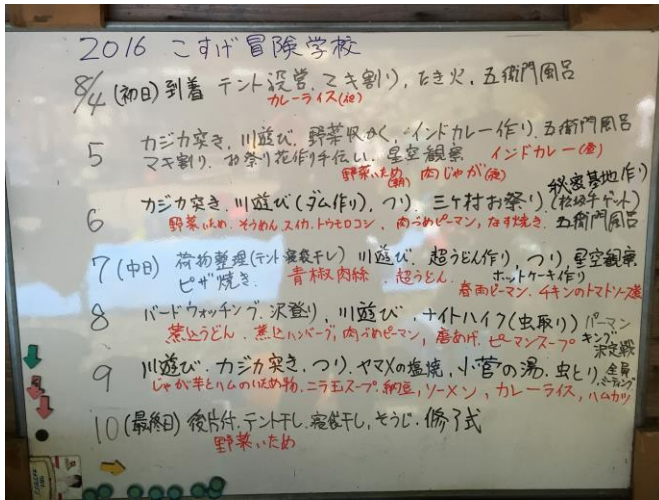 2016 こすげ冒険学校
8/4 (初日) 到着 テント設営、マキ割り、たき火、五衛門風呂
カレーライス(夜)
5 カジカ突き、川遊び、野菜収かく、インドカレー作り、五衛門風呂
マキ割り、お祭り花作り手伝い、星空観察 インドカレー(昼)
野菜いため(朝) 肉じゃが(夜)
秘密基地(作り)
6 カジカ突き、川遊び(ダム作り)、つり、三ヶ村お祭り
野菜いため、そうめん、スイカ、トウモロコシ、肉づめピーマン、なす焼き、五衛門風呂
7 (中日) 荷物整理(テント・寝袋干し) 川遊び、超うどん作り、つり、星空観察
ピザ焼き、 青椒肉絲、超うどん、 ホットケーキ作り
春雨ピーマン、チキンのトマトソース煮
8 バードウォッチング、沢登り、川遊び、ナイトハイク(虫取り) ピーマン
煮込うどん、煮込ハンバーグ、肉づめピーマン、唐あげ、ピーマンスープ キング
決定戦
9 川遊び、カジカ突き、つり、ヤマメの塩焼、小菅の湯、虫とり、全員
ミーティング
じゃが芋とハムのいため物、ニラ玉スープ、納豆、ソーメン、カレーライス、ハムカツ
10 (最終日) 後片付、テント干し、寝袋干し、そうじ、修了式
野菜いため